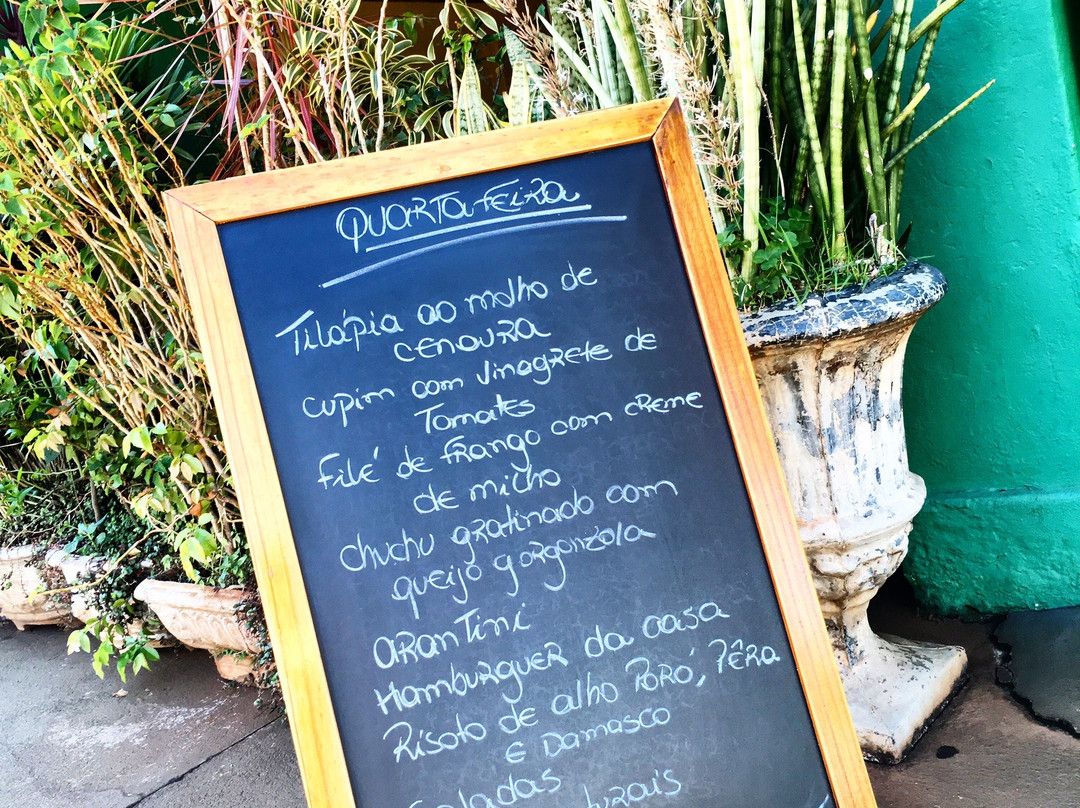 QUARTA-FEIRA
Tilápia ao molho de
cenoura
cupim com vinagrete de
Tomates
Filé de frango com creme
de milho
chuchu gratinado com
queijo gorgonzola
ARANTINI
Hamburguer da casa
Risoto de alho Poró, Pêra
e Damasco
Saladas